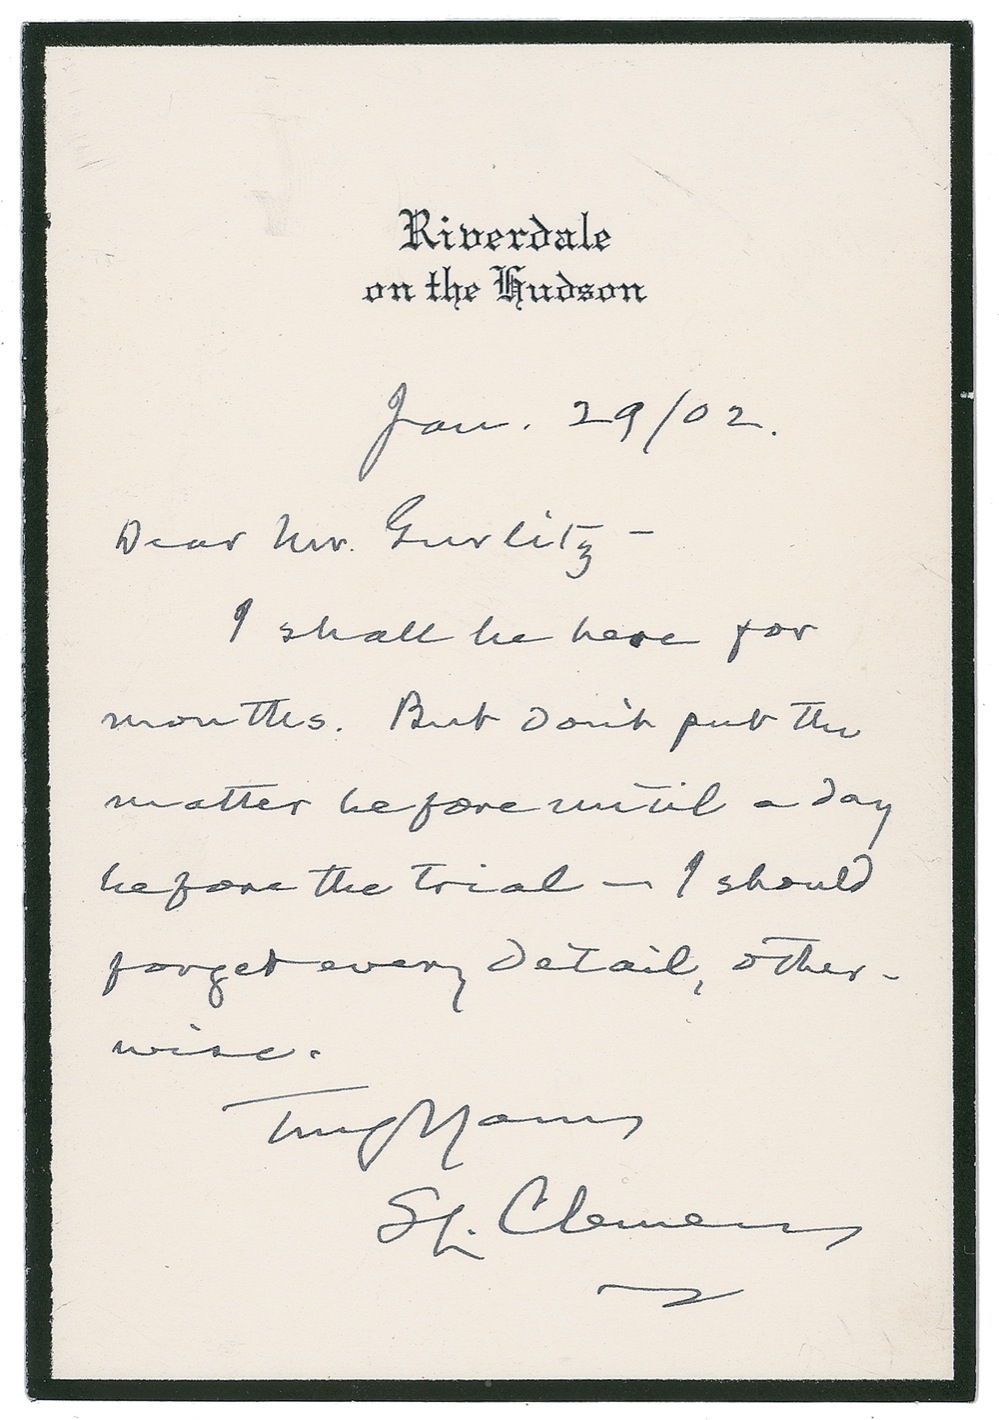 Riverdale
on the Hudson
Jan. 29/02.
Dear Mr. Gurlitz —
I shall be here for
months. But don't put the
matter before until a day
before the trial — I should
forget every detail, other-
wise.
Truly Yours
SL. Clemens